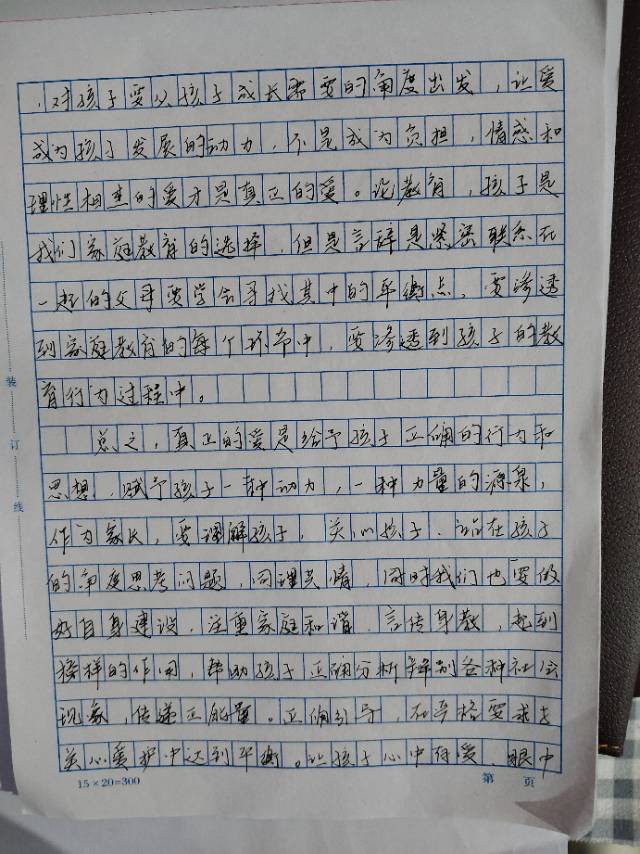 ，对孩子要从孩子成长需要的角度出发，让爱
成为孩子发展的动力，不是成为负担，情感和
理性相惠的爱才是真正的爱。论教育，孩子是
我们家庭教育的选择，但是言辞是紧密联系在
一起的父母要学会寻找其中的平衡点，要渗透
到家庭教育的每个环节中，要渗透到孩子的教
育行为过程中。
总之，真正的爱是给予孩子正确的行为和
思想，赋予孩子一种动力，一种力量的源泉，
作为家长，要理解孩子，关心孩子，站在孩子
的角度思考问题，同理共情，同时我们也要做
好自身建设，注重家庭和谐，言传身教，起到
榜样的作用，帮助孩子正确分析辩别各种社会
现象，传递正能量。正确引导，在严格要求与
关心爱护中达到平衡。让孩子心中有爱，眼中
15×20=300
第 页
装
订
线